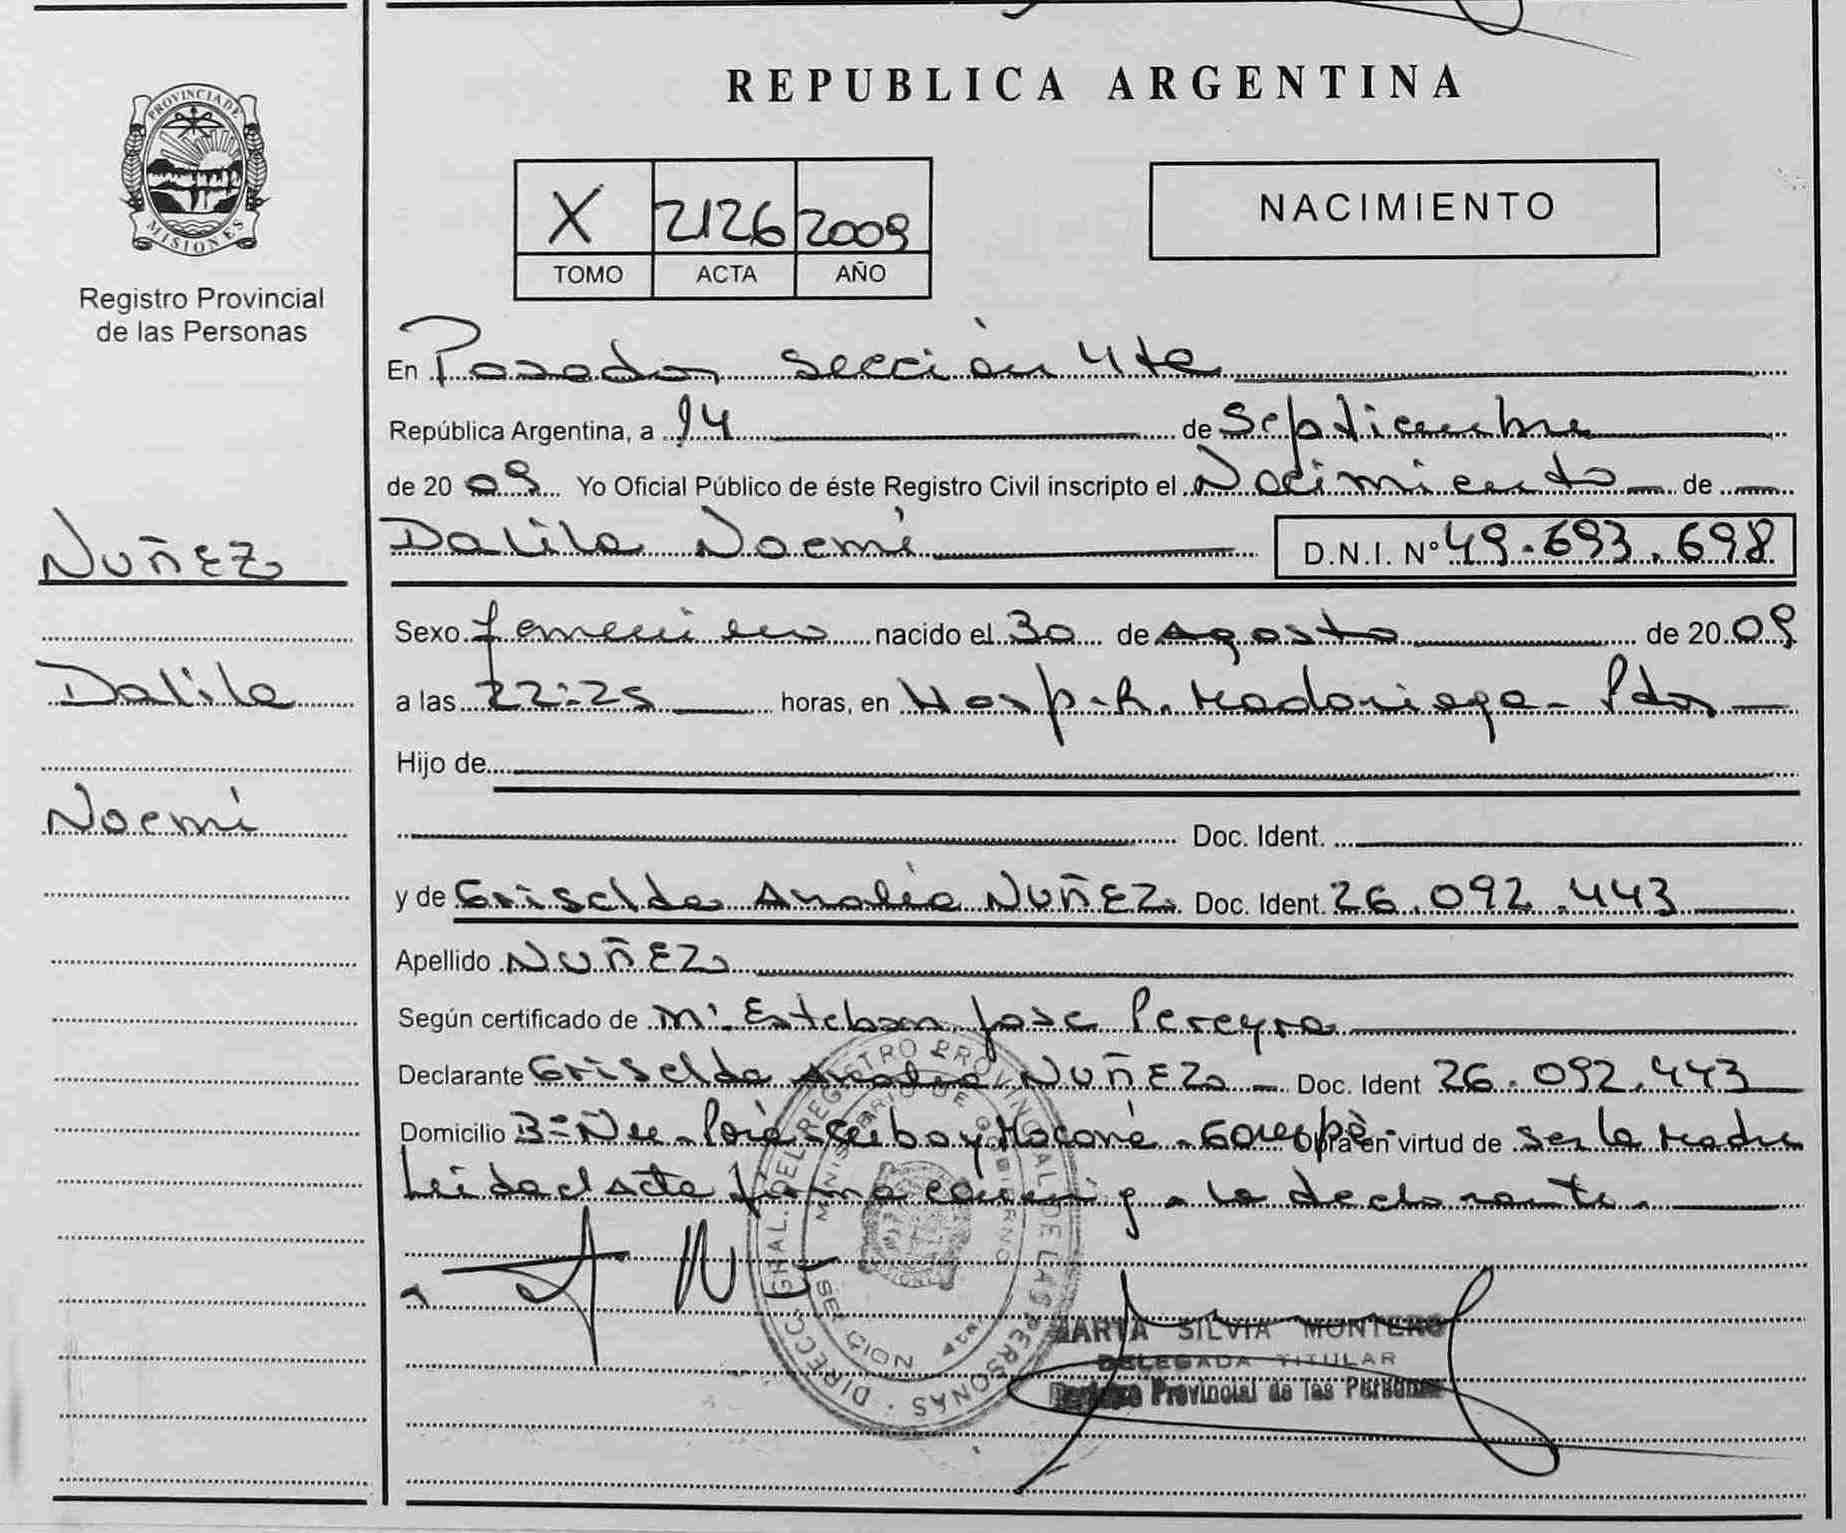 PROVINCIA DE
MISIONES
Registro Provincial
de las Personas
NUÑEZ
Dalila
Noemí
REPUBLICA ARGENTINA
X 2126 2009
TOMO ACTA AÑO
NACIMIENTO
En Posadas sección 4ta
República Argentina, a 14 de Septiembre
de 20 09 Yo Oficial Público de éste Registro Civil inscripto el Nacimiento de
Dalila Noemí D.N.I. Nº 49.693.698
Sexo femenino nacido el 30 de Agosto de 20 09
a las 22:25 horas, en Hosp. R. Madariaga - Pdas
Hijo de
Doc. Ident.
y de Griselda Analía NUÑEZ Doc. Ident. 26.092.443
Apellido NUÑEZ
Según certificado de Esteban José Pereyra
Declarante Griselda Analia NUÑEZ Doc. Ident 26.092.443
Domicilio Bº Ñu Porá - Ceibo y Moconá - Garupá - Obra en virtud de ser la madre
Leida el acta firma conmigo la declarante.
DIRECC. GRAL. DEL REGISTRO PROVINCIAL DE LAS PERSONAS
MINISTERIO DE GOBIERNO
SECCION 4ta
MARTA SILVIA MONTERO
DELEGADA TITULAR
Registro Provincial de las Personas